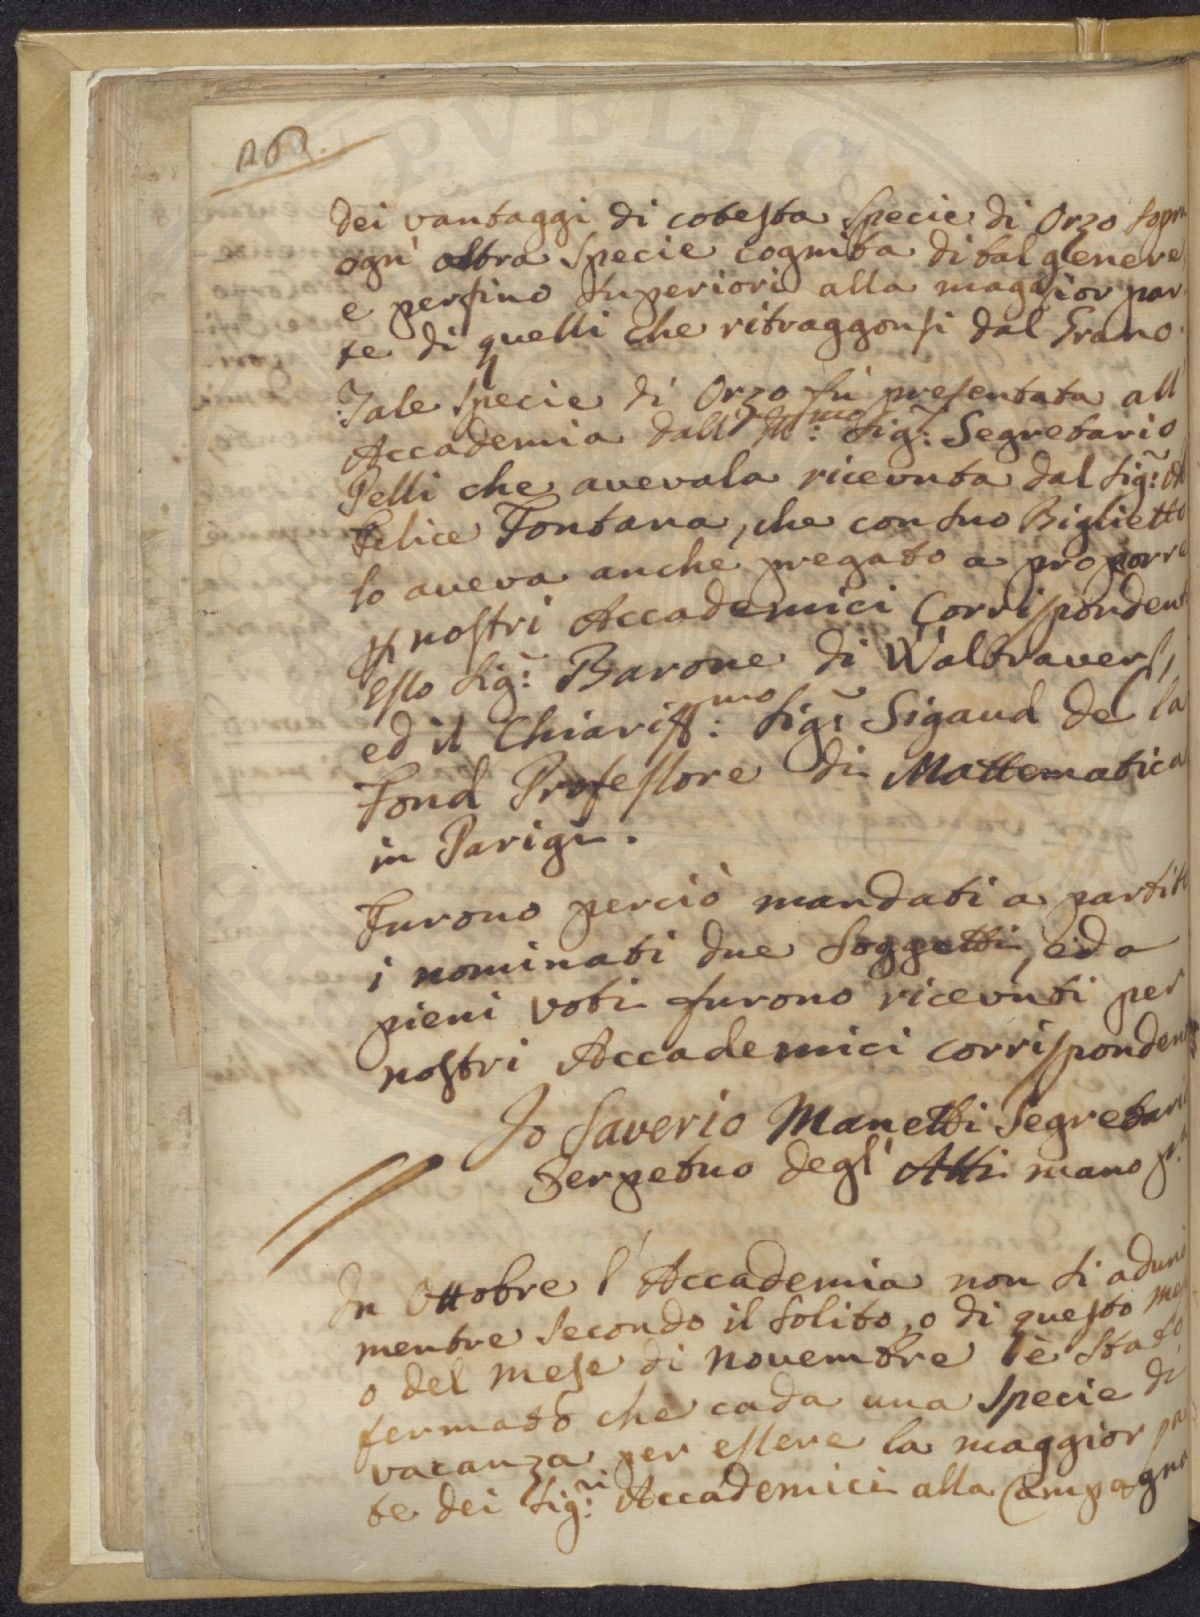 dei vantaggi di cotesta specie di Orzo sopra
ogn' altra specie cognita di tal genere
e persino superiori alla maggior par
te di quelli che ritraggonsi dal Grano.
Tale specie di Orzo fù presentata all
Accademia dall' Ill:mo Sig: Segretario
Pelli che avevala ricevuta dal Sig:
Felice Fontana, che con suo Biglietto
lo aveva anche pregato a proporre
nostri Accademici Corrispondent
esso Sig: Barone di Waltravers,
ed il Chiariss:mo Sig: Sigaud de la
Fond Professore di Mattematica
in Parigi.
Furono perciò mandati a partit
i nominati due soggetti, ed a
pieni voti furono ricevuti per
nostri Accademici corrisponden
Io Saverio Manetti Segretari
Perpetuo degl' Atti mano pa
In Ottobre l'Accademia non si adunò
mentre secondo il solito, o di questo mese
o del mese di Novembre è stato
fermato che cada una specie di
vacanza per essere la maggior pa
te dei Sig:ri Accademici alla Campagna